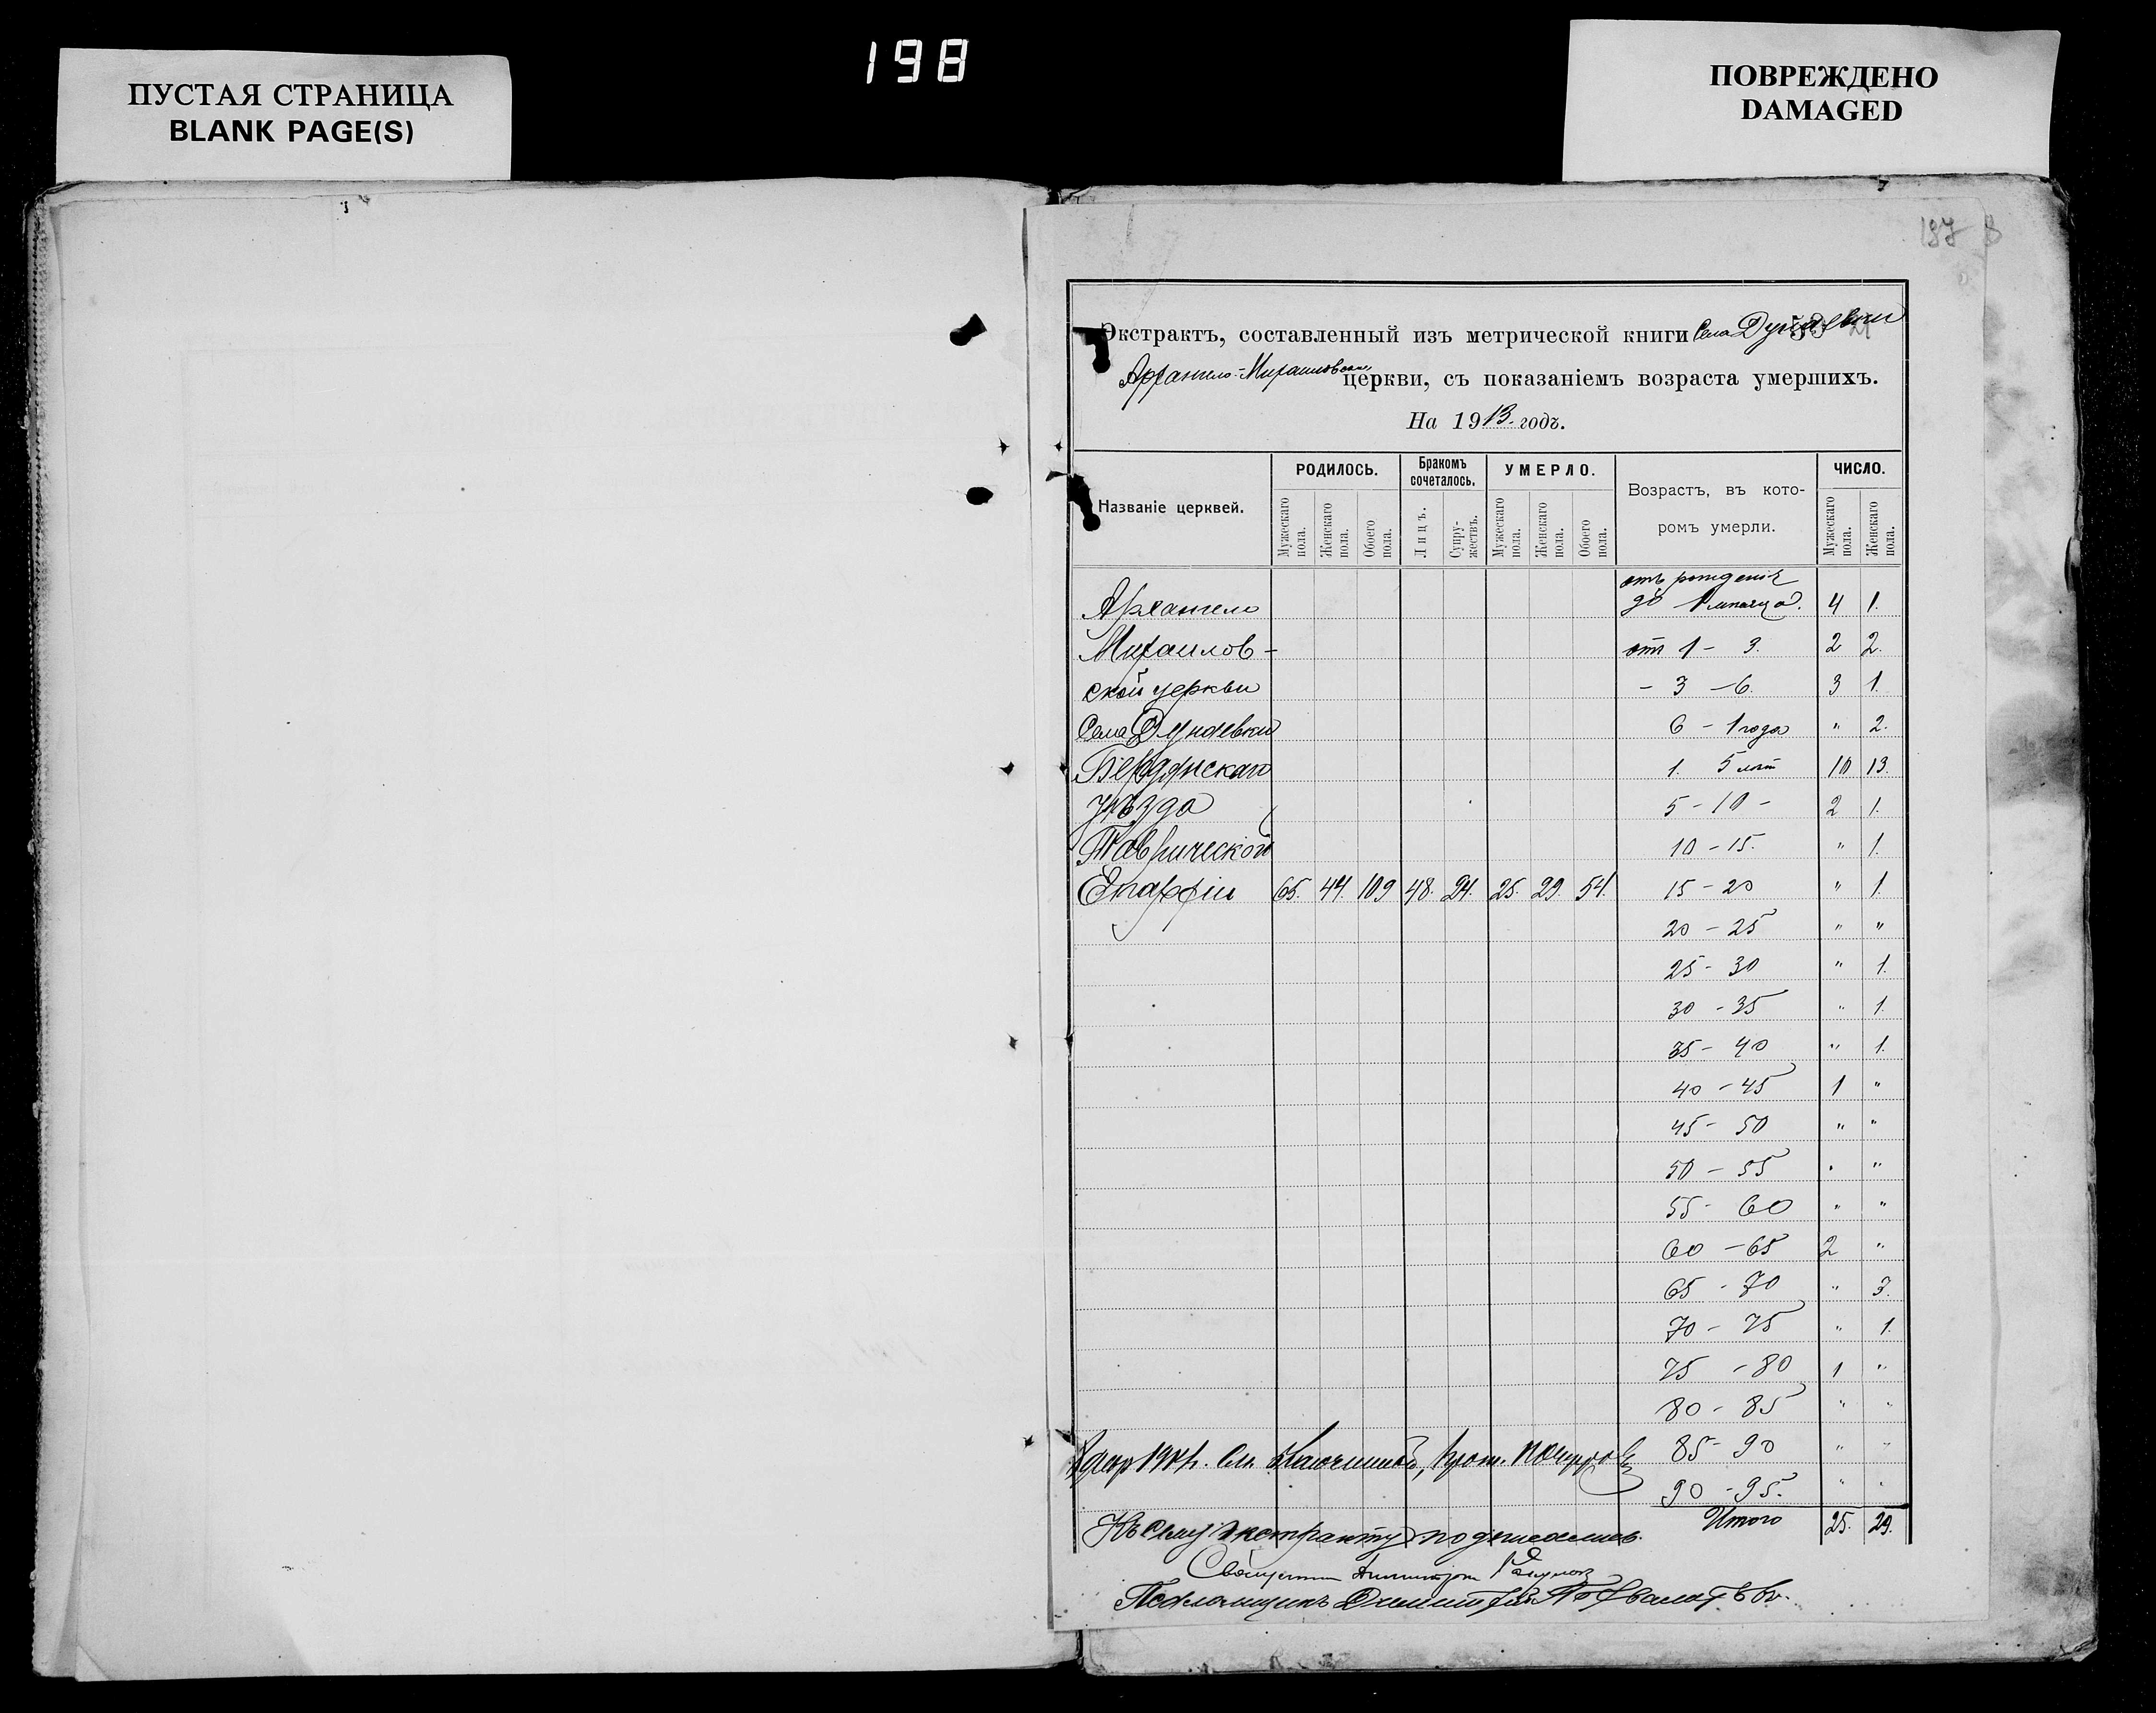 198
ПУСТАЯ СТРАНИЦА
BLANK PAGE(S)
ПОВРЕЖДЕНО
DAMAGED
197
Экстрактъ, составленный изъ метрической книги Села Дунаевки
Архангело-Михаиловской церкви, съ показаніемъ возраста умершихъ.
На 1913. годъ.
Названіе церквей. РОДИЛОСЬ. Бракомъ сочеталось. УМЕРЛО. Возрастъ, въ кото-ромъ умерли. ЧИСЛО.
Мужескаго пола. Женскаго пола. Обоего пола. Лицъ. Супру-жествъ. Мужескаго пола. Женскаго пола. Обоего пола. Мужескаго пола. Женскаго пола.
отъ рожденія
Архангело до 1 мѣсяца. 4 1.
Михаилов- от 1 - 3. 2 2.
ской церкви - 3 - 6. 3 1.
Села Дунаевки 6 - 1 года " 2.
Бердянскаго 1. 5 лѣт 10 13.
уѣзда 5 - 10 - 2 1.
Таврической 10 - 15. " 1.
Епархіи 65. 44. 109 48. 24. 25. 29. 54. 15 - 20 " 1.
20 - 25 " "
25 - 30 " 1.
30 - 35 " 1.
35 - 40 " 1.
40 - 45 1 "
45 - 50 " "
50 - 55 " "
55 - 60 " "
60 - 65 2 "
65 - 70 " 3.
70 - 75 " 1.
75 - 80 1 "
80 - 85 " "
85 - 90 " "
90 - 95. " "
Итого 25. 29.
Къ сему экстракту подписались.
Священник Димитрій
Псаломщикъ Димитрій